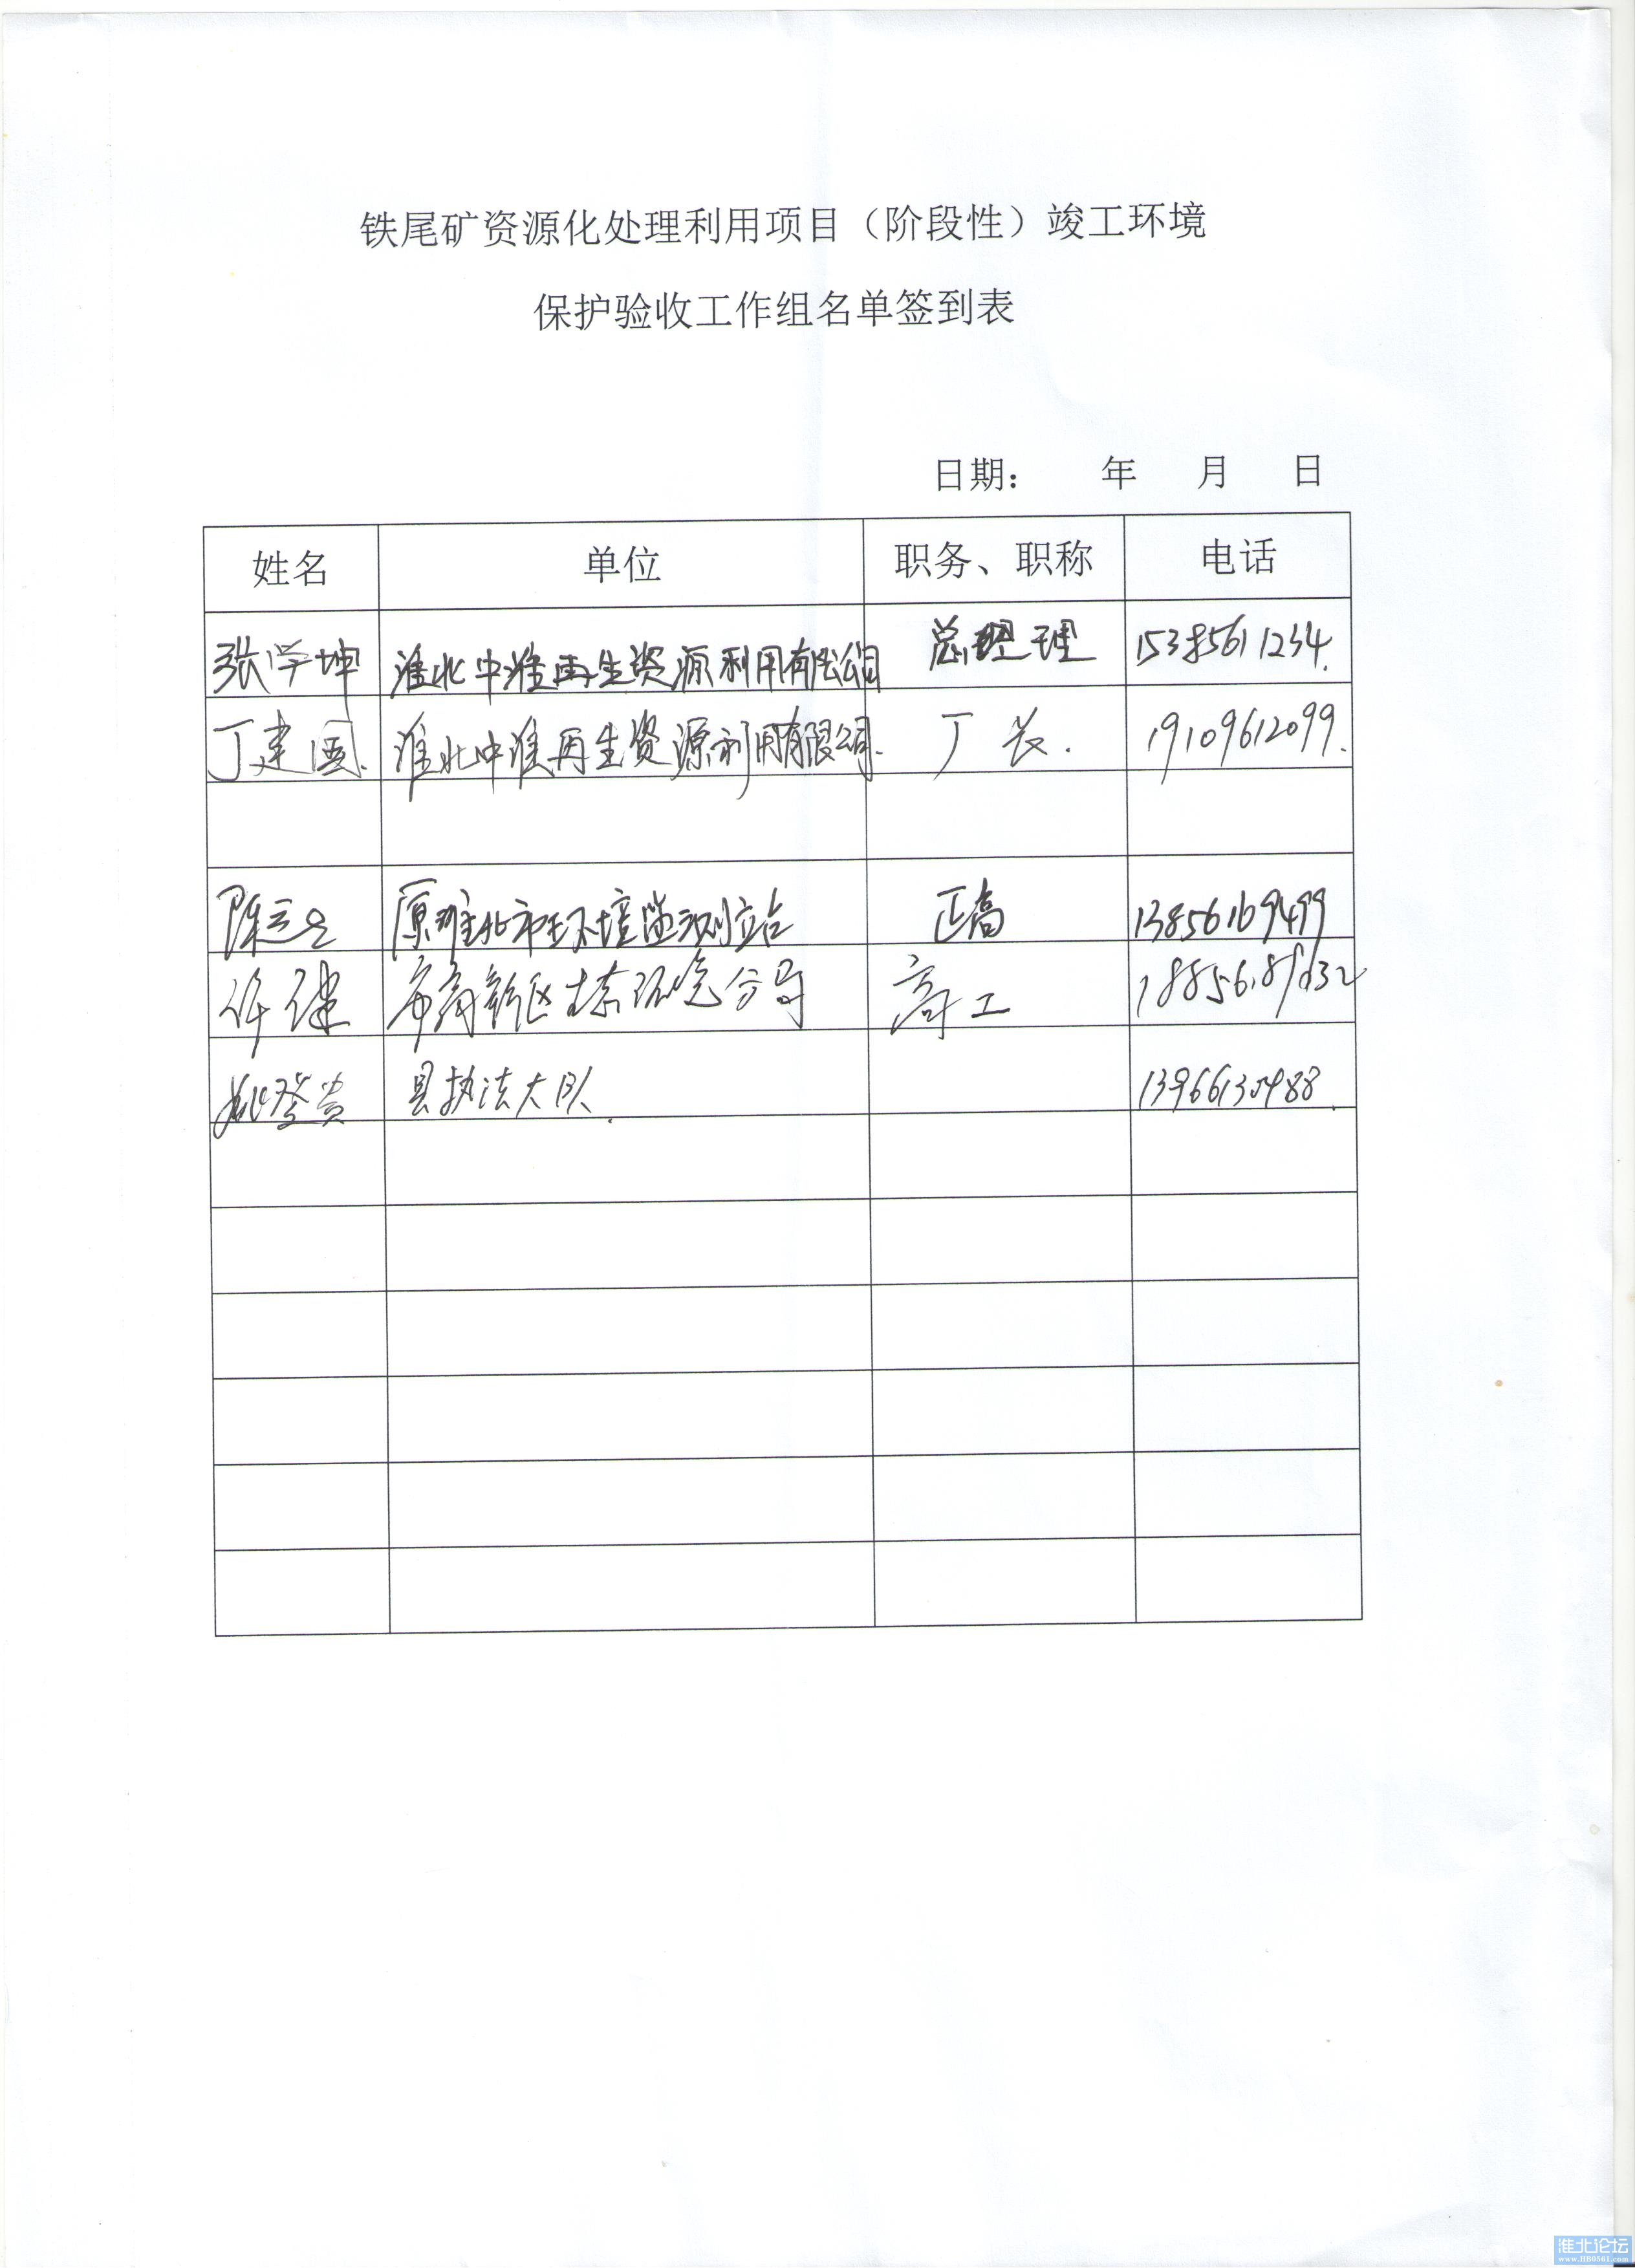 铁尾矿资源化处理利用项目（阶段性）竣工环境
保护验收工作组名单签到表
日期： 年 月 日
姓名 单位 职务、职称 电话
张学坤 淮北中淮再生资源利用有限公司 总经理 15385611234.
丁建国. 淮北中淮再生资源利用有限公司. 厂长. 19109612099.
陈 原淮北市环境监测站 正高 13856169499
许健 市高新区生态环境分局 高工
姚登贵 县执法大队.
淮北论坛
www.HB0561.com